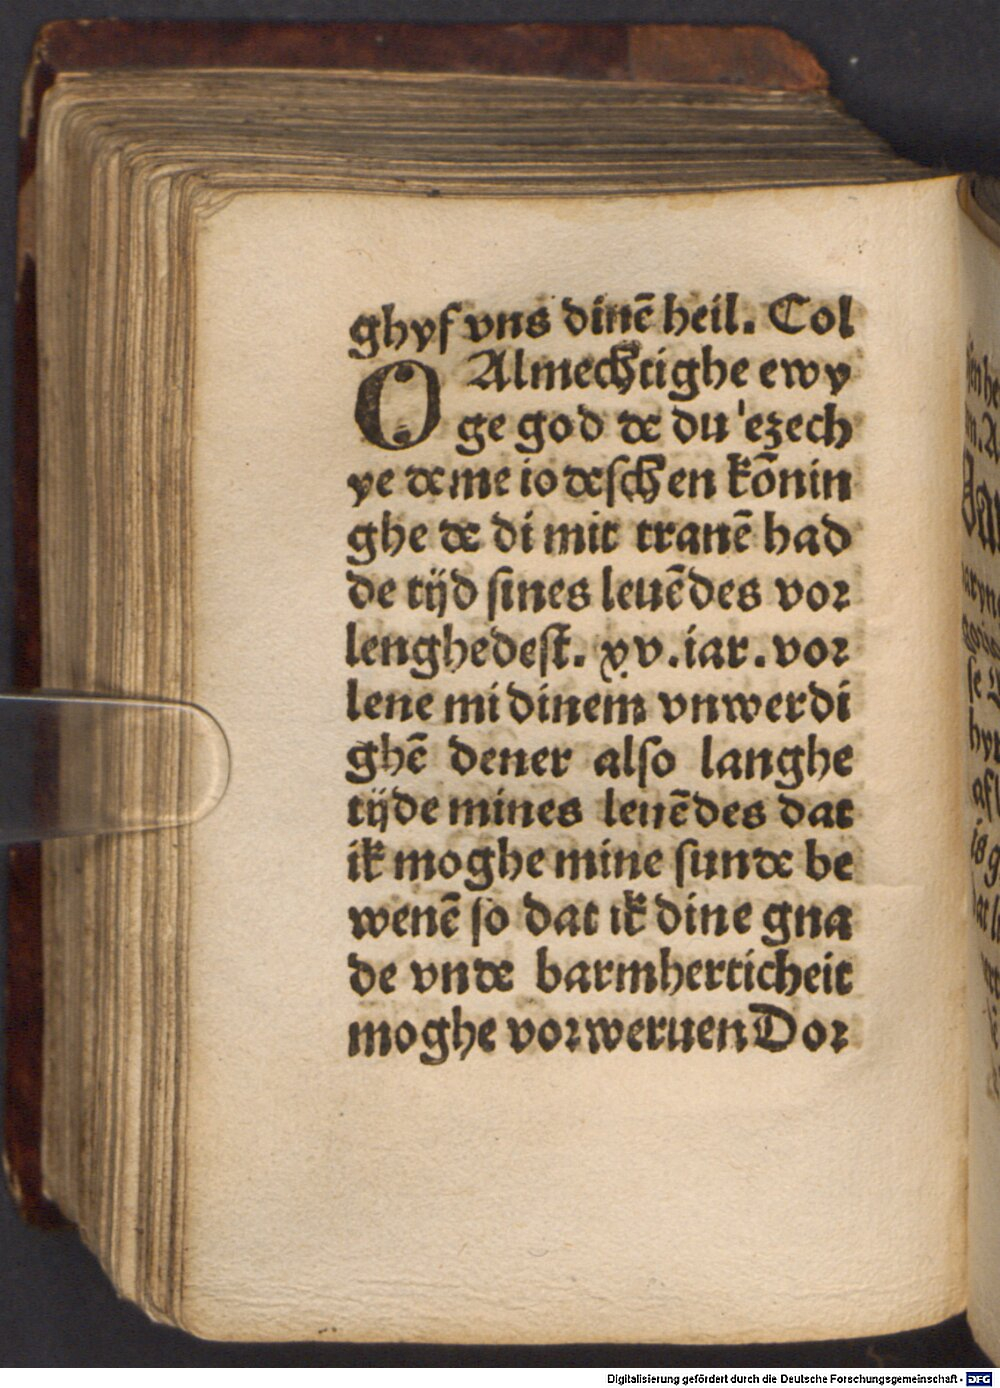 ghyf vns dinē heil. Col
O Almechtighe ewy
ge god de du ezech
ye deme iodeschen kōnin
ghe de di mit tranē bad
de tijd sines leuēdes vor
lenghedest. xv. iar. vor
lene mi dinem vnwerdi
ghē dener also langhe
tijde mines leuēdes dat
ik moghe mine sunde be
wenē so dat ik dine gna
de vnde barmherticheit
moghe vorweruen Dor
Digitalisierung gefördert durch die Deutsche Forschungsgemeinschaft - DFG